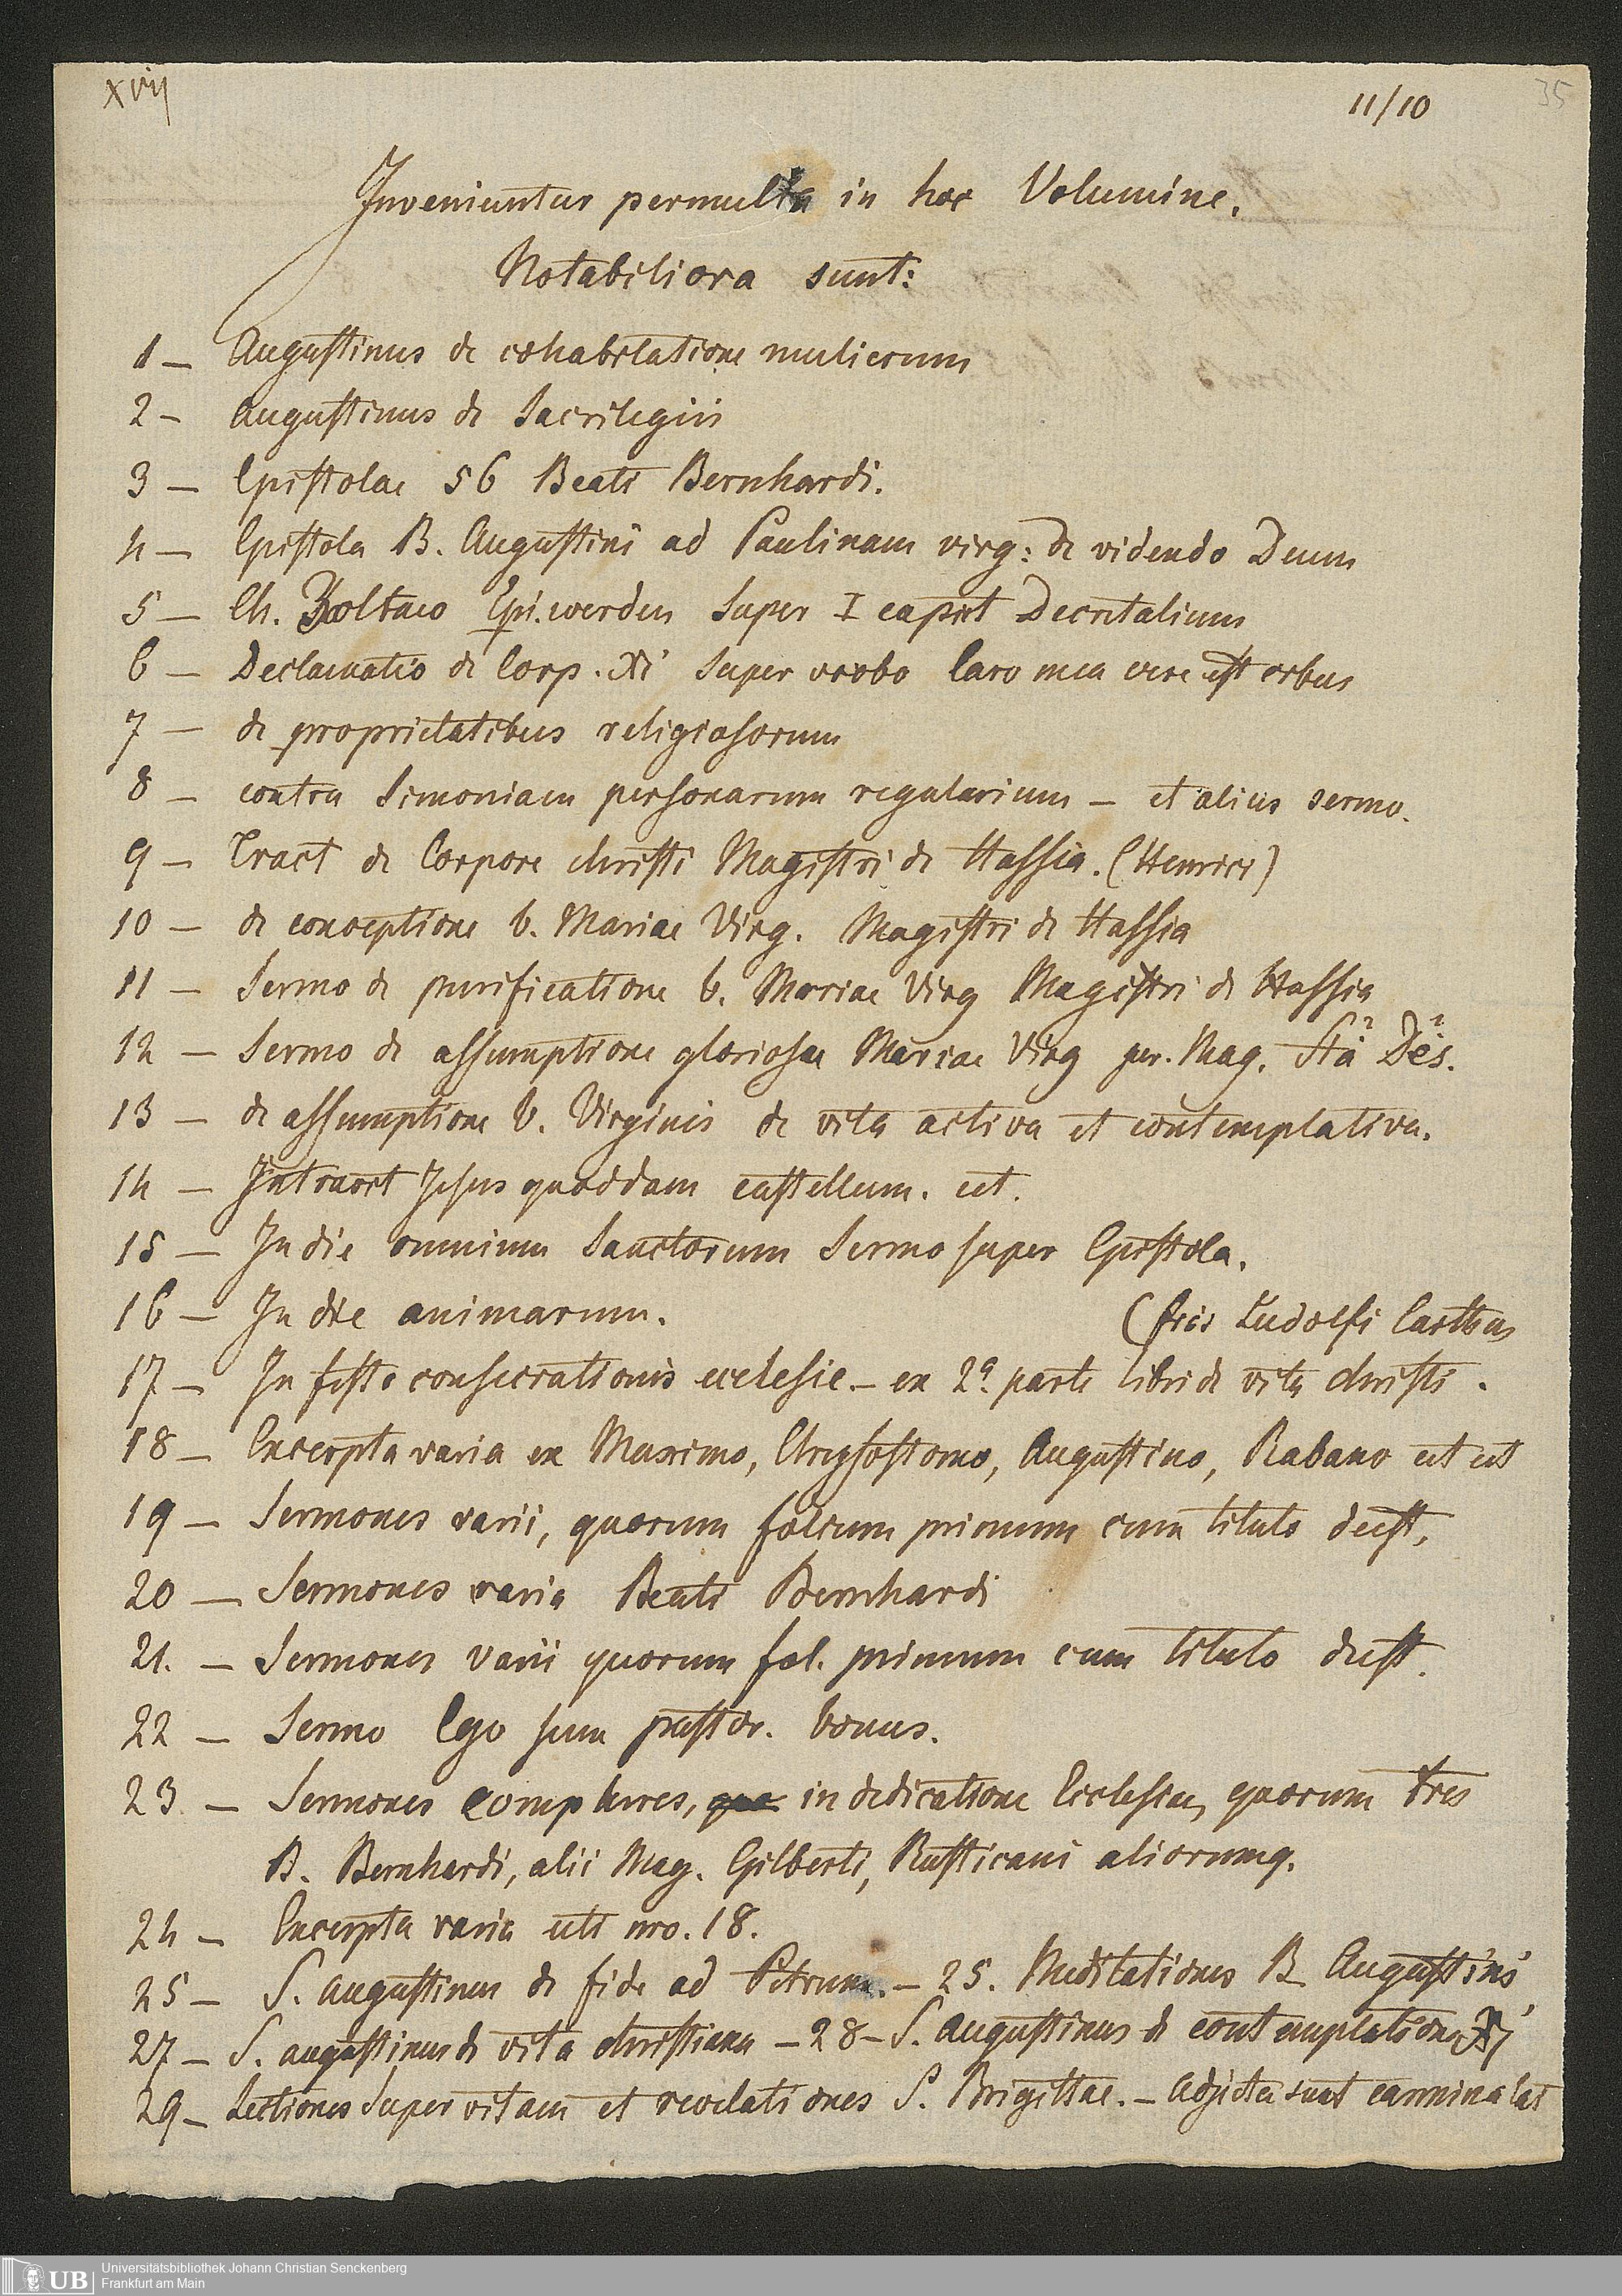 xvij
11/10
35
Inveniuntur permulta in hoc Volumine.
Notabiliora sunt:
1 — Augustinus de cohabitatione mulierum
2 — Augustinus de Sacrilegiis
3 — Epistolae 56 Beati Bernhardi.
4 — Epistola B. Augustini ad Paulinam virg: de videndo Deum
5 — Ch. Zoltaco Epi. werden super I caput Decretalium
6 — Declamatio de Corp. Xi super verbo Caro mea vere est cibus
7 — de proprietatibus religiosorum
8 — contra Simoniam personarum regularium — et alius sermo.
9 — Tract de Corpore christi Magistri de Hassia. (Henrici)
10 — de conceptione b. Mariae Virg. Magistri de Hassia
11 — Sermo de purificatione b. Mariae Virg Magistri de Hassia
12 — Sermo de assumptione gloriosae Mariae Virg per. Mag.
13 — de assumptione b. Virginis de vita activa et contemplativa.
14 — Intravit Jesus quoddam castellum. ect.
15 — In die omnium Sanctorum Sermo super Epistola.
16 — In die animarum. (fris Ludolfi Carthus
17 — In festo consecrationis ecclesie — ex 2a. parte libri de vita christi.
18 — Excerpta varia ex Maximo, Chrysostomo, Augustino, Rabano ect ect
19 — Sermones varii, quorum folium primum cum titulo deest.
20 — Sermones varia Beati Bernhardi
21. — Sermones varii quorum fol. primum cum titulo deest.
22 — Sermo Ego sum pastor. bonus.
23. — Sermones complures, in dedicatione Ecclesiae, quorum tres
B. Bernhardi, alii Mag. Gilberti, Rusticani aliorumq.
24 — Excerpta varia uti nro. 18.
25 — S. Augustinus de fide ad Petrum. — 25. Meditationes B Augustini
27 — S. augustinus de vita christiana — 28 — S. Augustinus de contemplatione Xi
29 — Lectiones super vitam et revelationes S. Brigittae. — Adjecta sunt carmina lat
UB
Universitätsbibliothek Johann Christian Senckenberg
Frankfurt am Main